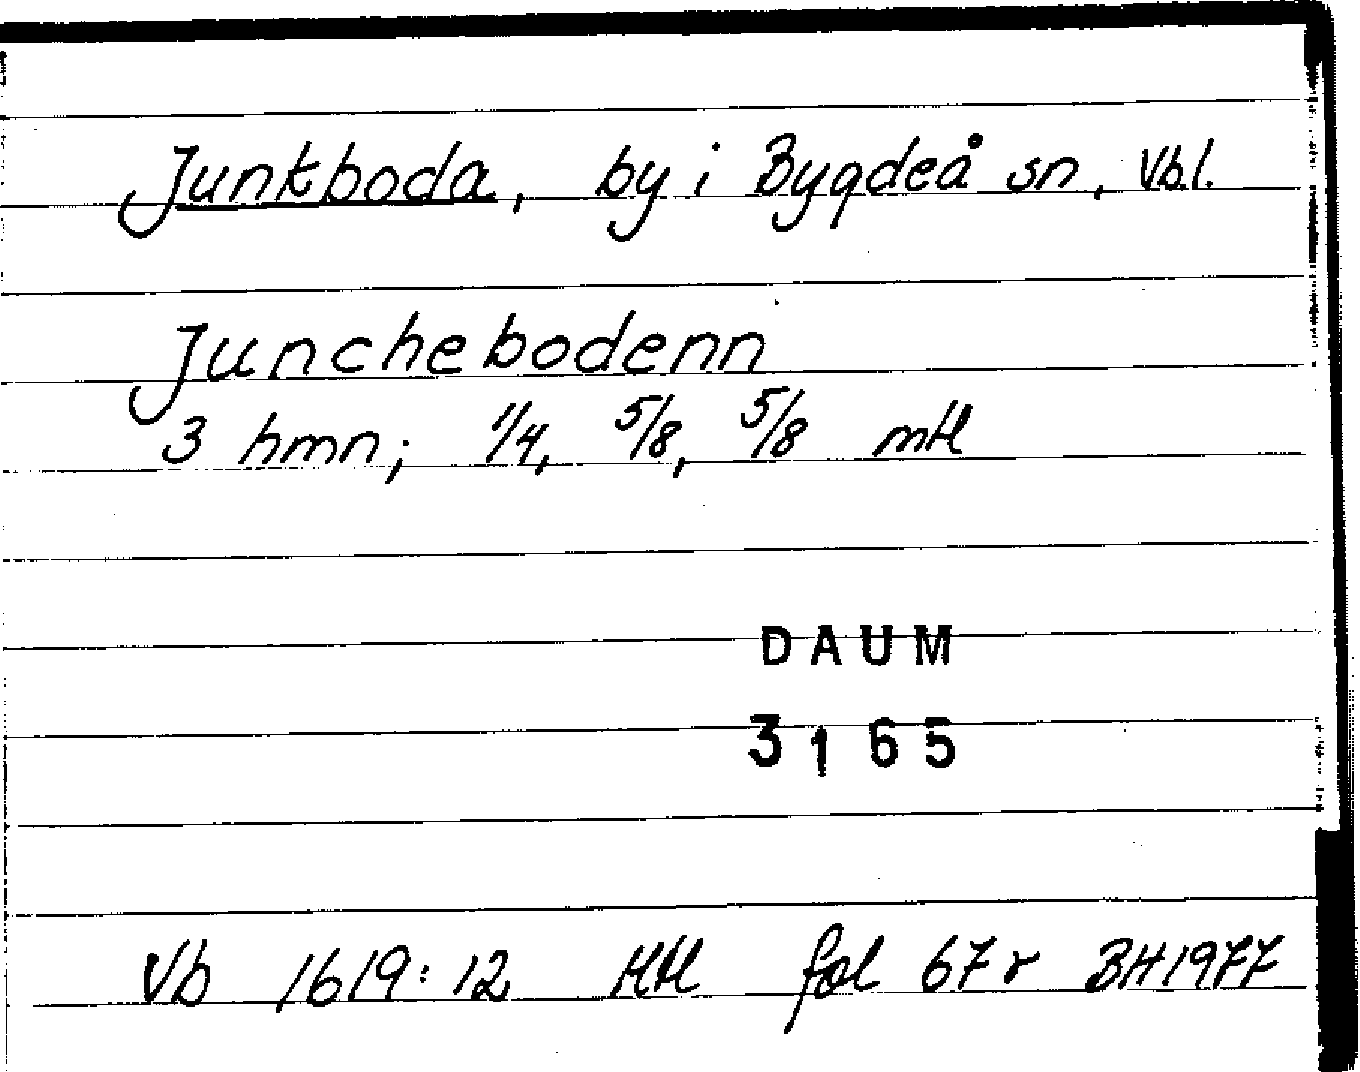 Junkboda, by i Bygdeå sn, Vbl.
Junchebodenn
3 hmn; 1/4, 5/8, 5/8 mtl
DAUM
3165
Vb 1619:12 HH fol 67r BH1977